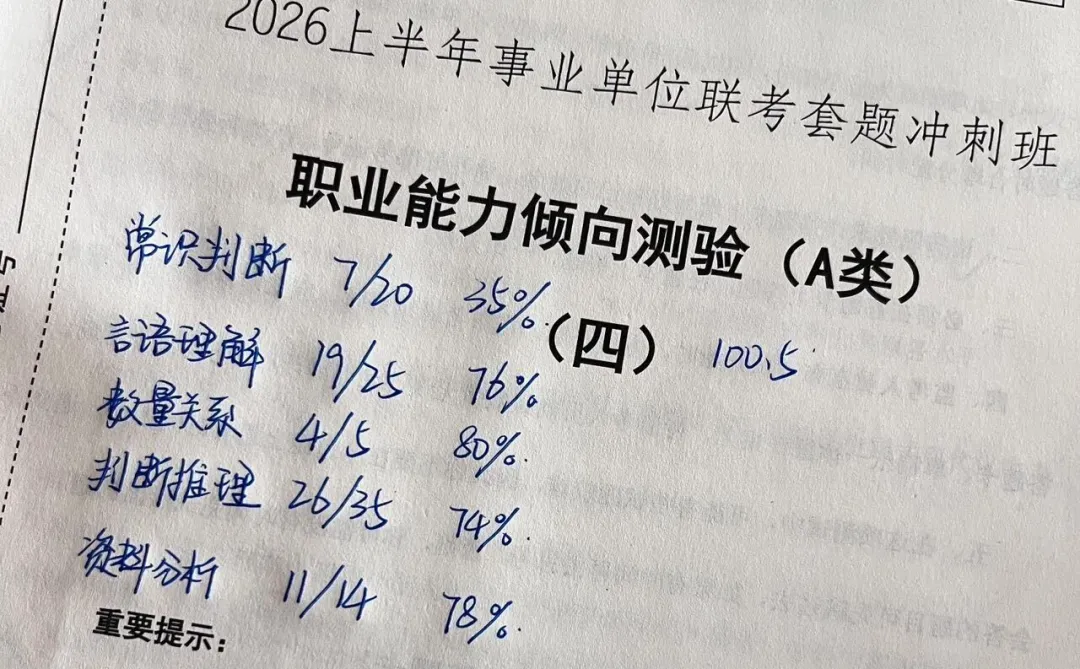 2026上半年事业单位联考套题冲刺班
职业能力倾向测验（A类）
（四） 100.5
常识判断 7/20 35%.
言语理解 19/25 76%.
数量关系 4/5 80%.
判断推理 26/35 74%.
资料分析 11/14 78%.
重要提示：